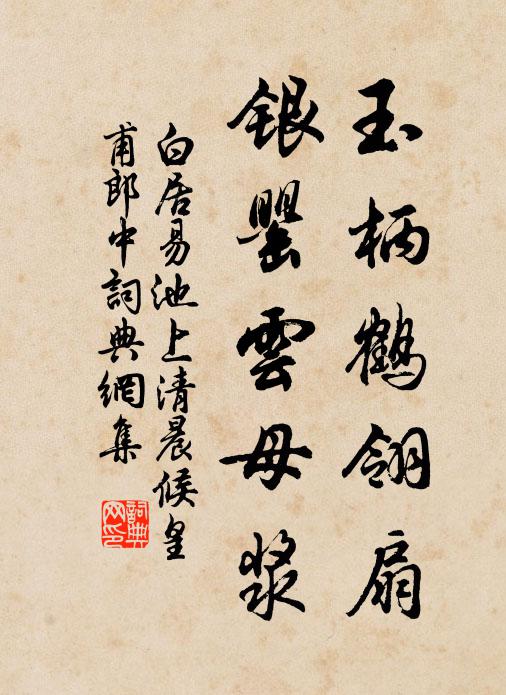 玉柄鶴翎扇
銀罌雲母漿
白居易池上清晨候皇
甫郎中詞典網集
詞典
网印